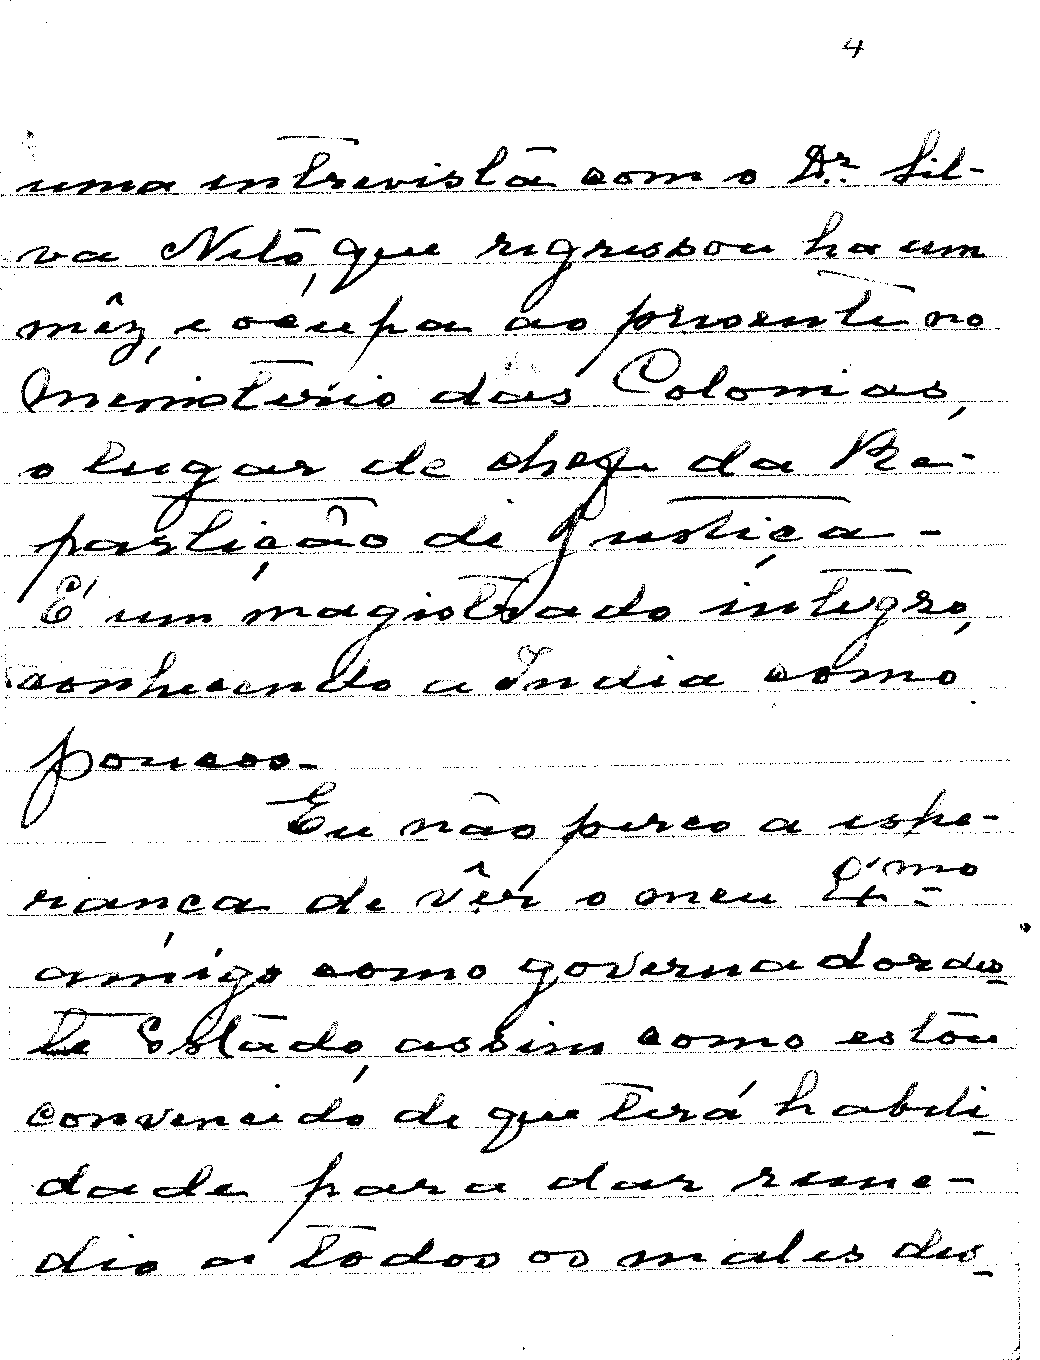 4
uma entrevista com o Dr. Sil-
va Neto, que regressou ha um
mêz, e ocupa ao presente no
Ministerio das Colonias,
o lugar de chefe da Re-
partição de Justiça -
É um magistrado integro,
conhecendo a India como
poucos.-
Eu não perco a espe-
rança de vêr o meu Exmo
amigo como governador des-
te Estado, assim como estou
convencido de que terá habili-
dade para dar reme-
dio a todos os males des-